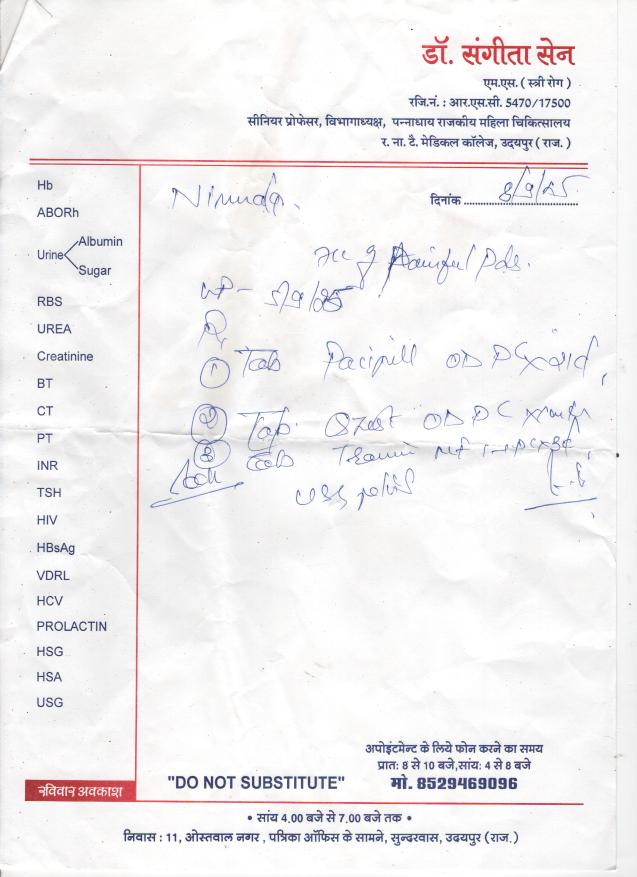 डॉ. संगीता सेन
एम.एस. ( स्त्री रोग )
रजि.नं. : आर.एस.सी. 5470/17500
सीनियर प्रोफेसर, विभागाध्यक्ष, पन्नाधाय राजकीय महिला चिकित्सालय
र. ना. टै. मेडिकल कॉलेज, उदयपुर ( राज. )
दिनांक 8/9/25
Hb
ABORh
Urine Albumin
Sugar
RBS
UREA
Creatinine
BT
CT
PT
INR
TSH
HIV
HBsAg
VDRL
HCV
PROLACTIN
HSG
HSA
USG
Painful Pds.
5/9/25
Rx
① Tab OD PC
② Tab. OD PC
③ Tab
USG pelvis
रविवार अवकाश
"DO NOT SUBSTITUTE"
अपोइंटमेन्ट के लिये फोन करने का समय
प्रात: 8 से 10 बजे,सांय: 4 से 8 बजे
मो. 8529469096
• सांय 4.00 बजे से 7.00 बजे तक •
निवास : 11, ओस्तवाल नगर , पत्रिका ऑफिस के सामने, सुन्दरवास, उदयपुर (राज.)